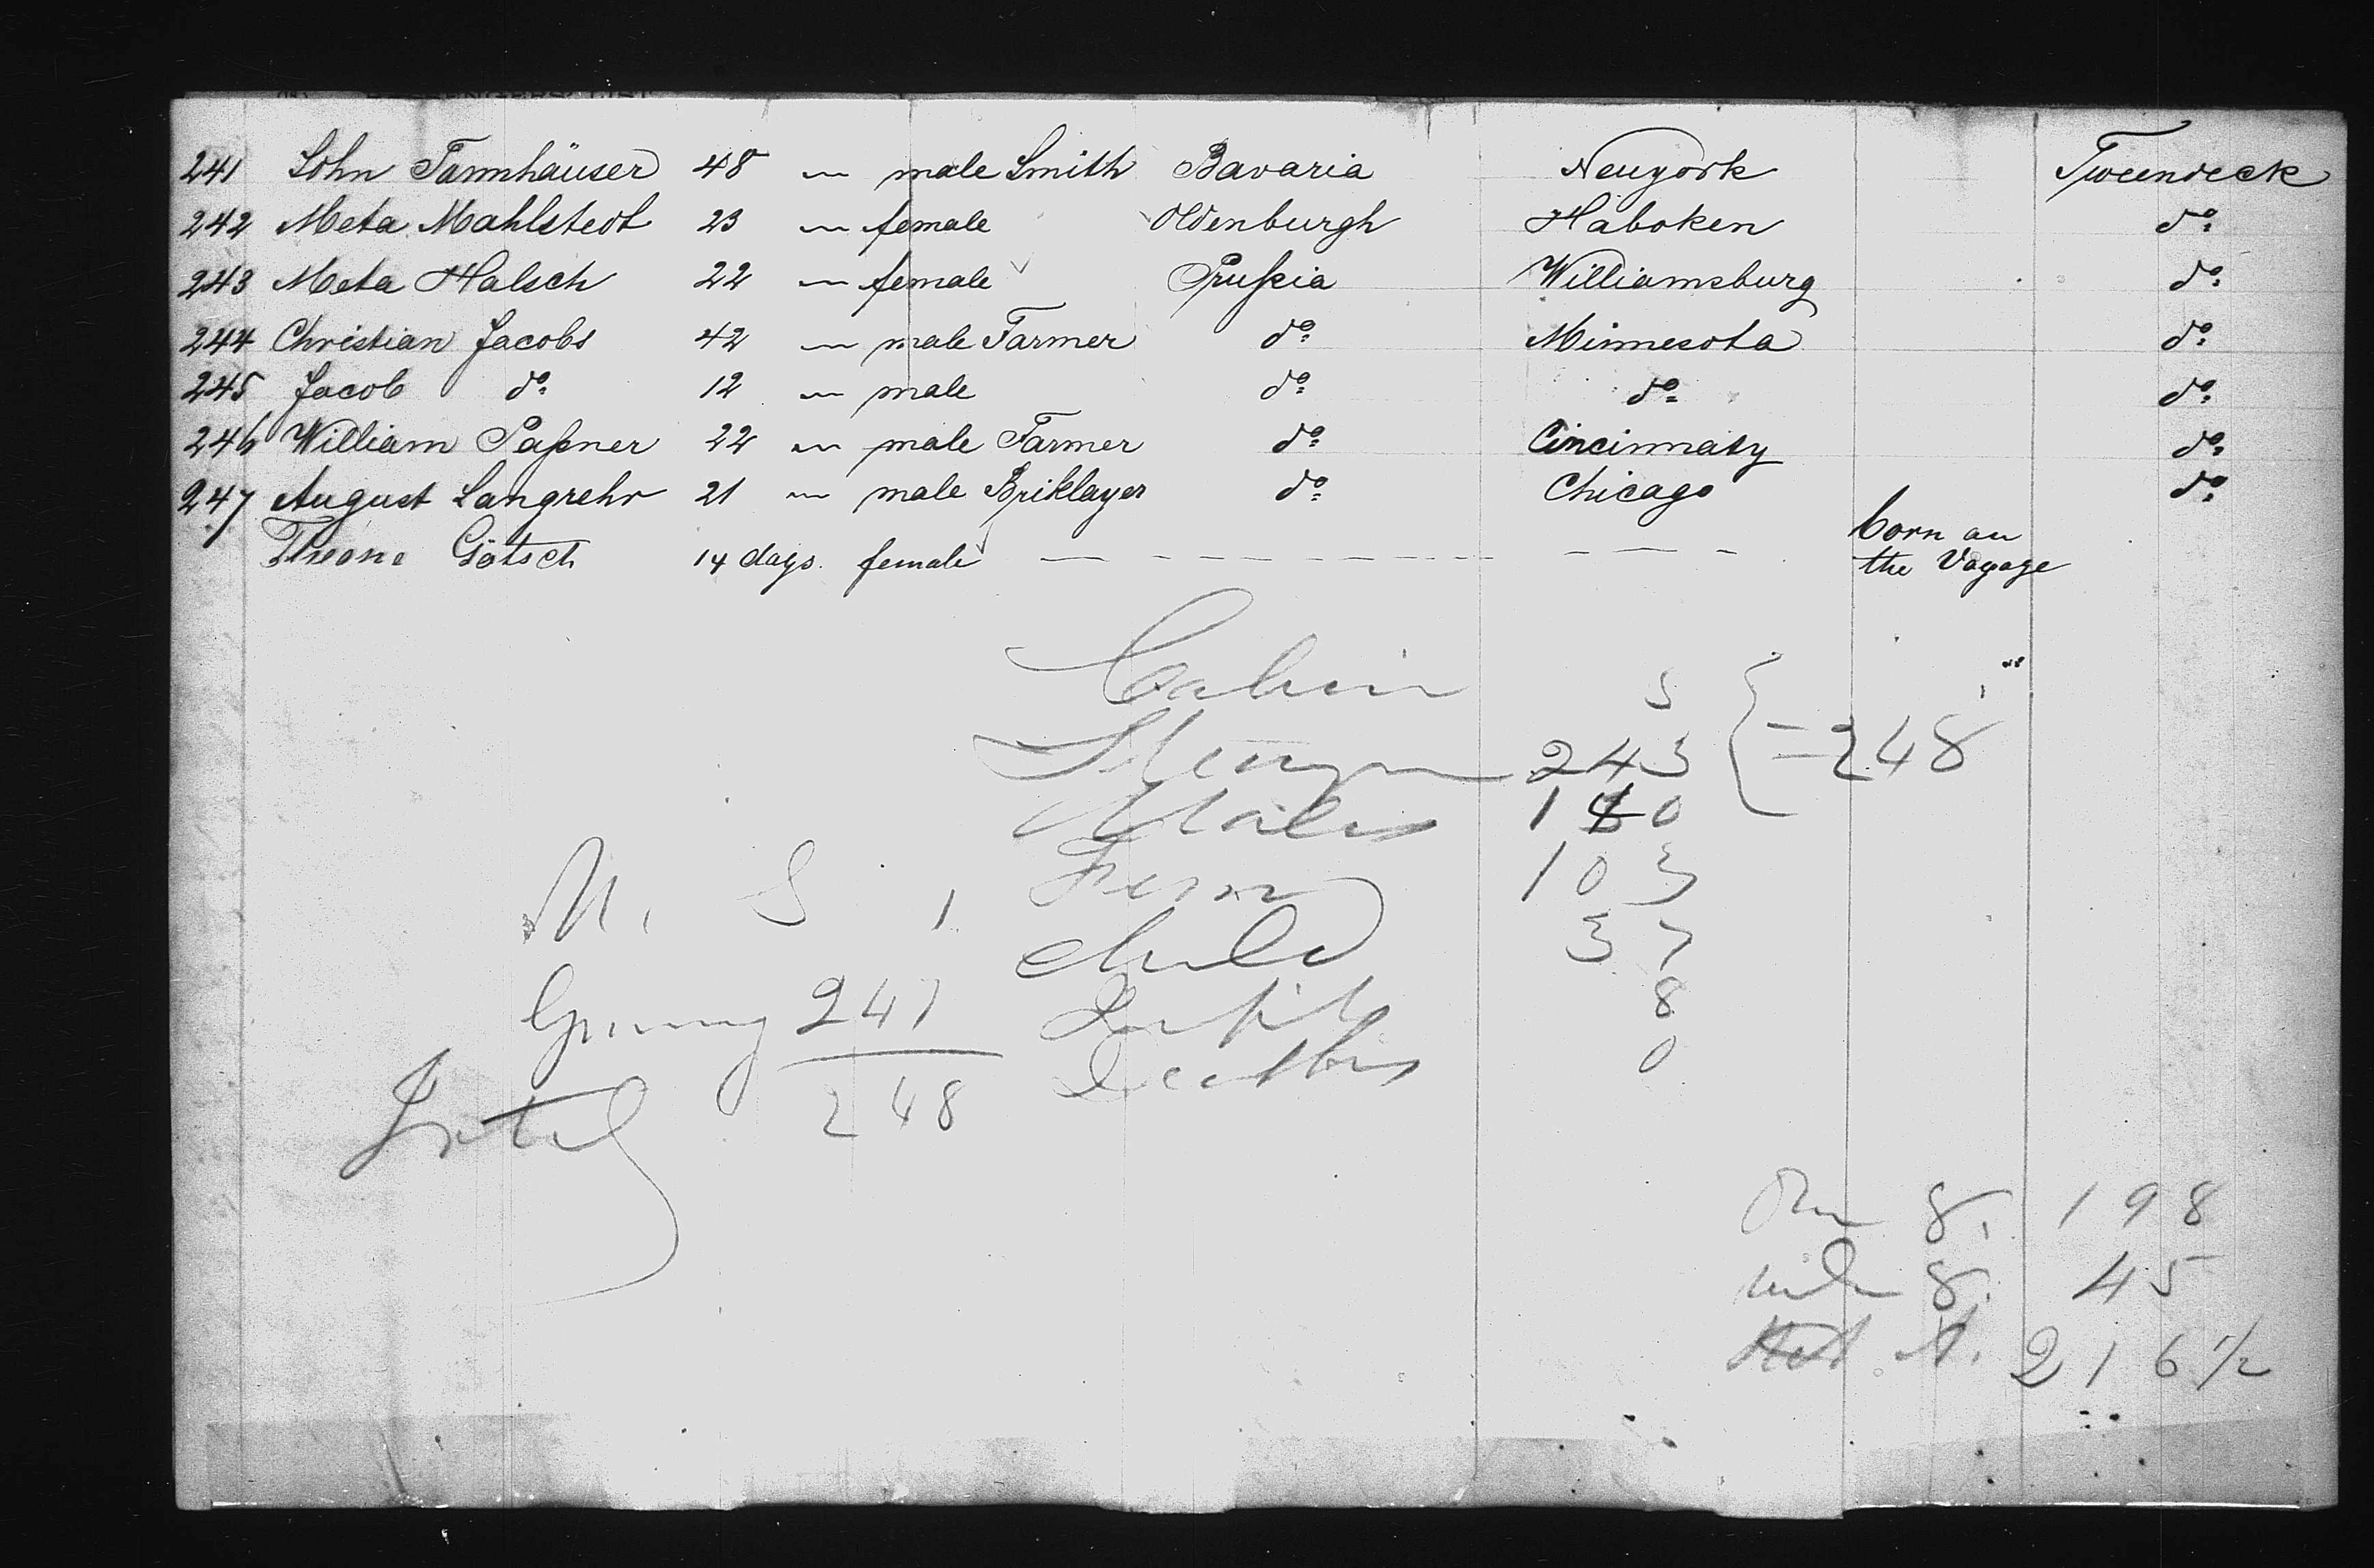 241 John Tannhäuser 48 " male Smith Bavaria Neuyork Tweendeck
242 Meta Mahlstedt 23 " female Oldenburgh Haboken do
243 Meta Halsch 22 " female Prußia Williamsburg do
244 Christian Jacobs 42 " male Farmer do Minnesota do
245 Jacob do 12 " male do do do
246 William Paßner 22 " male Farmer do Cincinnaty do
247 August Langrehr 21 " male Briklayer do Chicago do
Götsch 14 days. female born an the Voyage
Cabin 5
243 = 248
Males 1 0
Fem 103
U. S 1
Child 37
Germany 247
8
Deaths 0
Total 248
8. 198
8. 45
A. 216 1/2